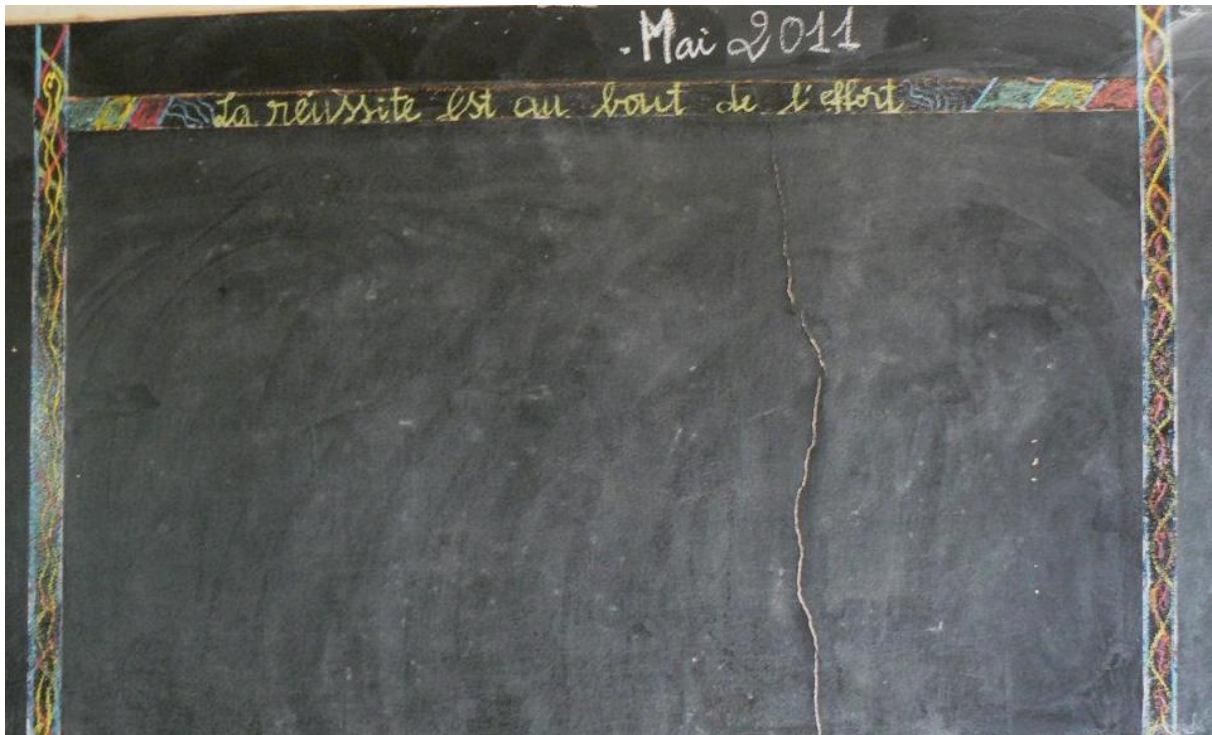 . Mai 2011
La réussite est au bout de l'effort